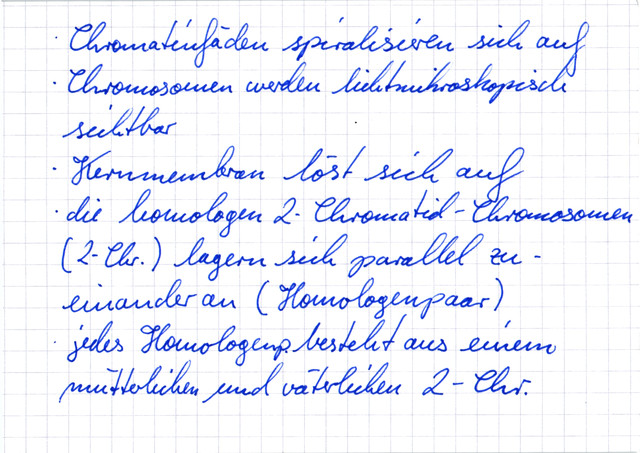 · Chromatinfäden spiralisieren sich auf
· Chromosomen werden lichtmikroskopisch
sichtbar
· Kernmembran löst sich auf
· die homologen 2-Chromatid-Chromosomen
(2-Chr.) lagern sich parallel zu-
einander an (Homologenpaar)
· jedes Homologenp. besteht aus einem
mütterlichen und väterlichen 2-Chr.